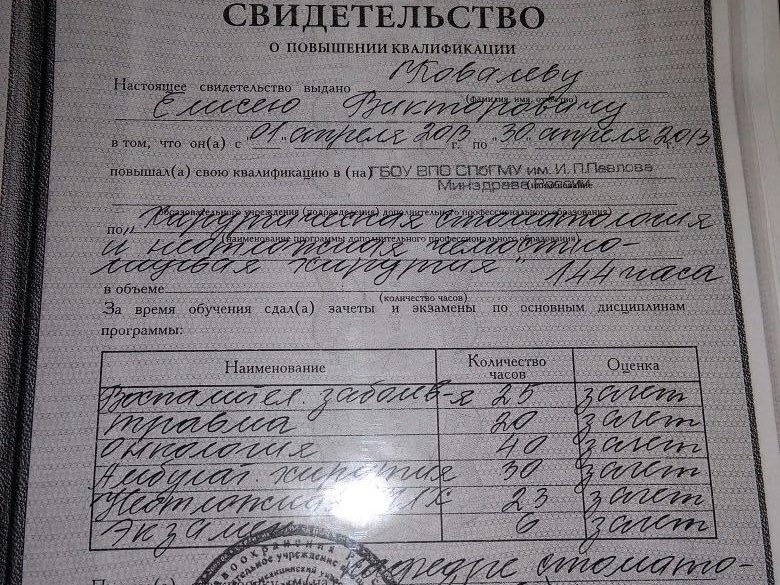 СВИДЕТЕЛЬСТВО
О ПОВЫШЕНИИ КВАЛИФИКАЦИИ
Настоящее свидетельство выдано Ковалеву
(фамилия, имя, отчество)
Елисею Викторовичу
в том, что он(а) с "01" апреля 2013 г. по "30" апреля 2013
повышал(а) свою квалификацию в (на) ГБОУ ВПО СПбГМУ им. И. П. Павлова
Минздрава России
(наименование
образовательного учреждения (подразделения) дополнительного профессионального образования)
по "Хирургическая стоматология
(наименование программы дополнительного профессионального образования)
и неотложная челюстно-
лицевая хирургия"
в объеме 144 часа
(количество часов)
За время обучения сдал(а) зачеты и экзамены по основным дисциплинам
программы:
Наименование Количество часов Оценка
Воспалител. заболев-я 25 зачет
травма 20 зачет
онкология 40 зачет
Амбулат. хирургия 30 зачет
Неотложная ЧЛХ 23 зачет
Экзамен 6 зачет
кафедре стомато-